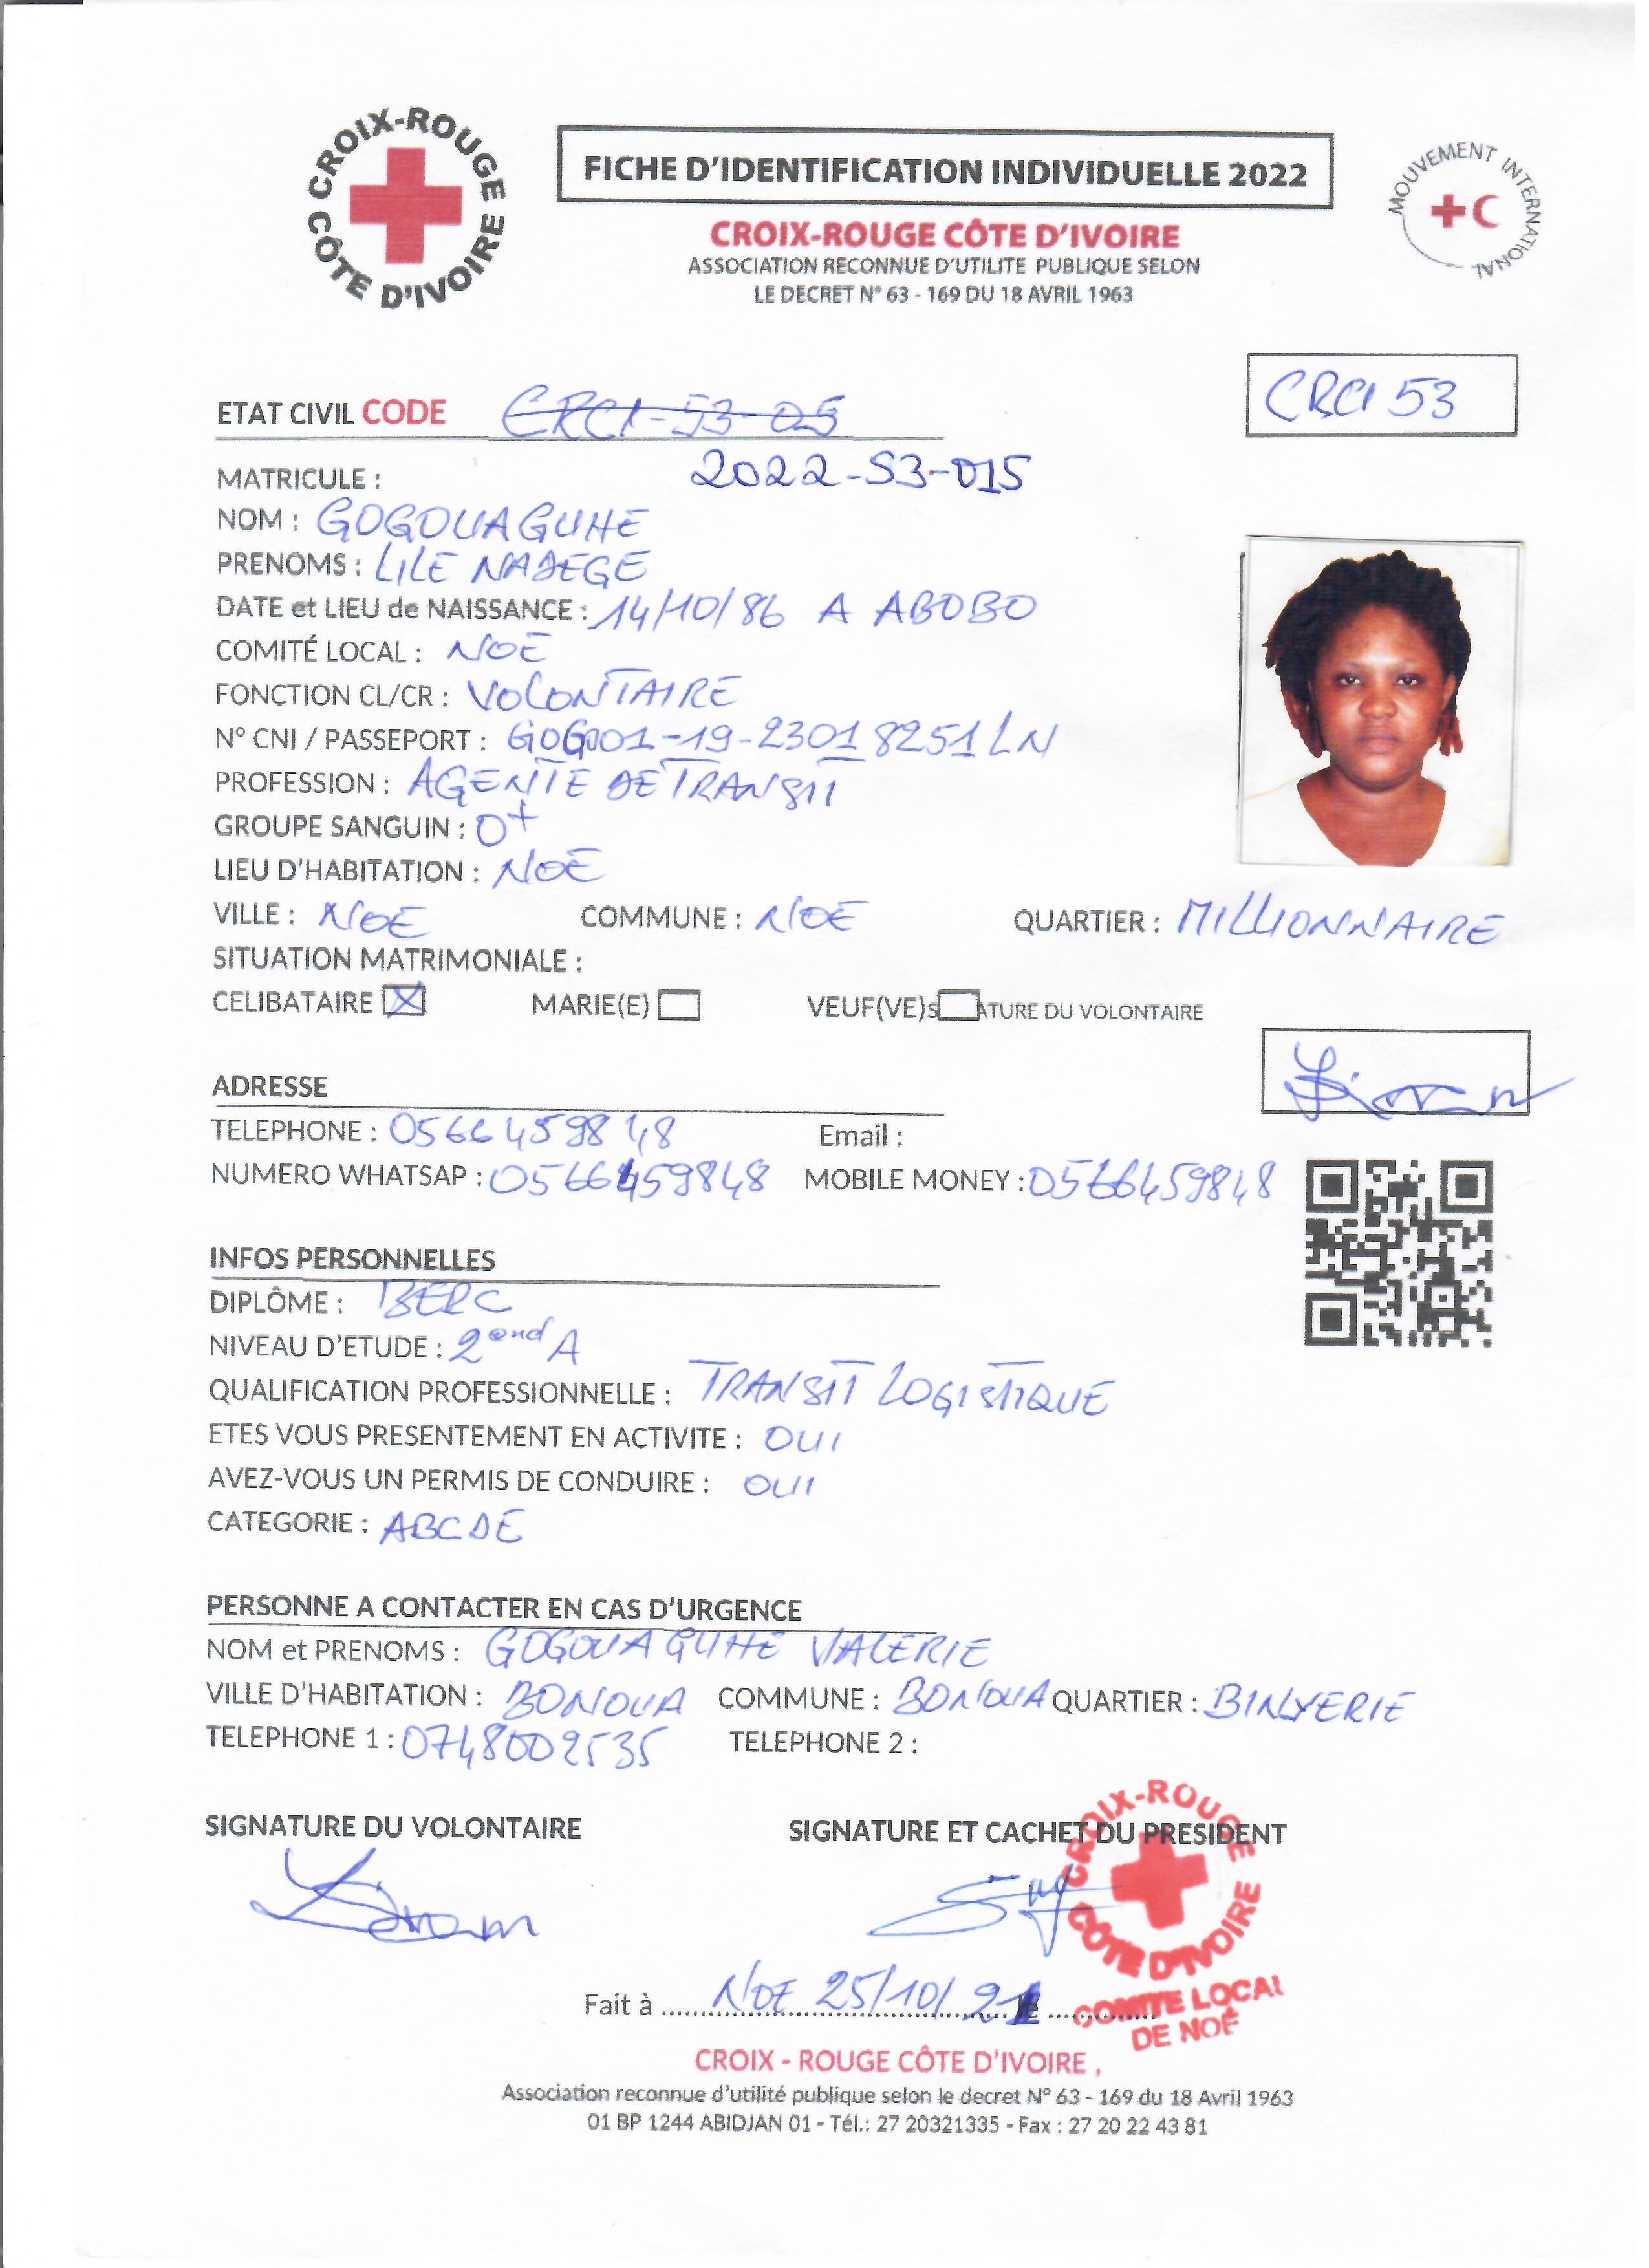 CROIX-ROUGE CÔTE D'IVOIRE
FICHE D'IDENTIFICATION INDIVIDUELLE 2022
MOUVEMENT INTERNATIONAL
CROIX-ROUGE CÔTE D'IVOIRE
ASSOCIATION RECONNUE D'UTILITE PUBLIQUE SELON
LE DECRET N° 63 - 169 DU 18 AVRIL 1963
CRCI 53
ETAT CIVIL CODE CRCI-53-05
MATRICULE : 2022-53-015
NOM : GOGOUAGUHE
PRENOMS : LILE NADEGE
DATE et LIEU de NAISSANCE : 14/10/86 A ABOBO
COMITÉ LOCAL : NOE
FONCTION CL/CR : VOLONTAIRE
N° CNI / PASSEPORT : GOG001-19-23018251LN
PROFESSION : AGENTE DE TRANSIT
GROUPE SANGUIN : O+
LIEU D'HABITATION : NOE
VILLE : NOE COMMUNE : NOE QUARTIER : MILLIONNAIRE
SITUATION MATRIMONIALE :
CELIBATAIRE X MARIE(E) VEUF(VE)S ATURE DU VOLONTAIRE
ADRESSE
TELEPHONE : 0566459848 Email :
NUMERO WHATSAP : 0566459848 MOBILE MONEY : 0566459848
INFOS PERSONNELLES
DIPLÔME : BEPC
NIVEAU D'ETUDE : 2ond A
QUALIFICATION PROFESSIONNELLE : TRANSIT LOGISTIQUE
ETES VOUS PRESENTEMENT EN ACTIVITE : OUI
AVEZ-VOUS UN PERMIS DE CONDUIRE : OUI
CATEGORIE : ABCDE
PERSONNE A CONTACTER EN CAS D'URGENCE
NOM et PRENOMS : GOGOUAGUHE VALERIE
VILLE D'HABITATION : BONOUA COMMUNE : BONOUA QUARTIER : BINYERIE
TELEPHONE 1 : 0748009535 TELEPHONE 2 :
SIGNATURE DU VOLONTAIRE SIGNATURE ET CACHET DU PRESIDENT
CROIX-ROUGE CÔTE D'IVOIRE
COMITE LOCAL
DE NOÉ
Fait à NOE 25/10/21 le
CROIX - ROUGE CÔTE D'IVOIRE ,
Association reconnue d'utilité publique selon le decret N° 63 - 169 du 18 Avril 1963
01 BP 1244 ABIDJAN 01 - Tél.: 27 20321335 - Fax : 27 20 22 43 81